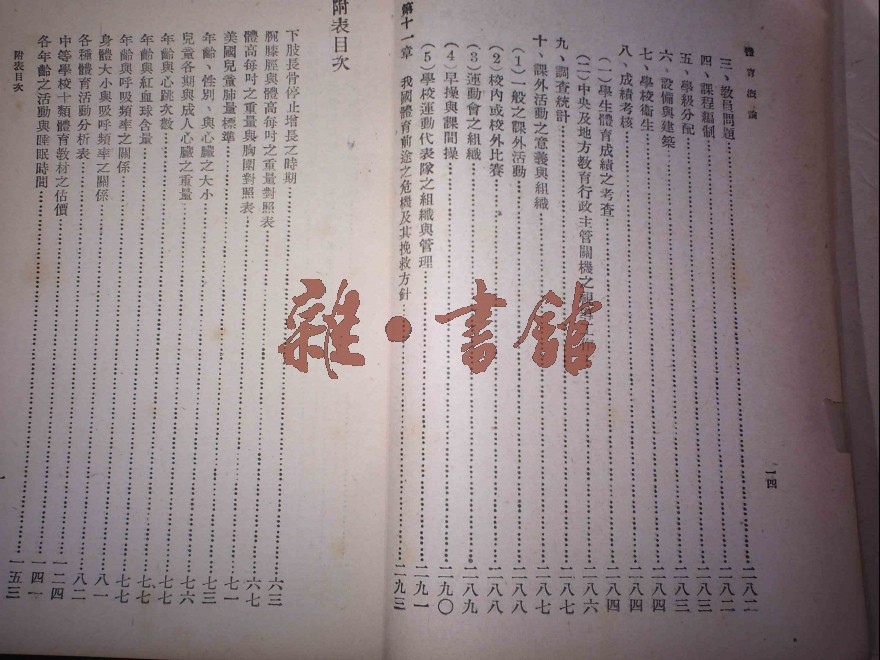 體育概論
三、教員問題……二八二
四、課程編制……二八二
五、學級分配……二八三
六、設備與建築……二八四
七、學校衞生……二八四
八、成績考核……二八四
(一)學生體育成績之考查……二八四
(二)中央及地方教育行政主管關機之……二八六
九、調查統計……二八七
十、課外活動之意義與組織……二八七
(1)一般之課外活動……二八八
(2)校內或校外比賽……二八八
(3)運動會之組織……二八九
(4)早操與課間操……二九〇
(5)學校運動代表隊之組織與管理……二九一
第十一章 我國體育前途之危機及其挽救方針……二九三
一四
附表目次
下肢長骨停止增長之時期……六三
腕膝脛與體高每吋之重量對照表……六七
體高每吋之重量與胸圍對照表
美國兒童肺量標準……七一
年齡、性別、與心臟之大小……七三
兒童各期與成人心臟之重量……七六
年齡與心跳次數……七七
年齡與紅血球含量……七七
年齡與呼吸頻率之關係……七七
身體大小與吸呼頻率之關係……八一
各種體育活動分析表……八二
中等學校十類體育教材之估價……一二四
各年齡之活動與睡眠時間……一四一
一五三
附表目次
一
雜·書館